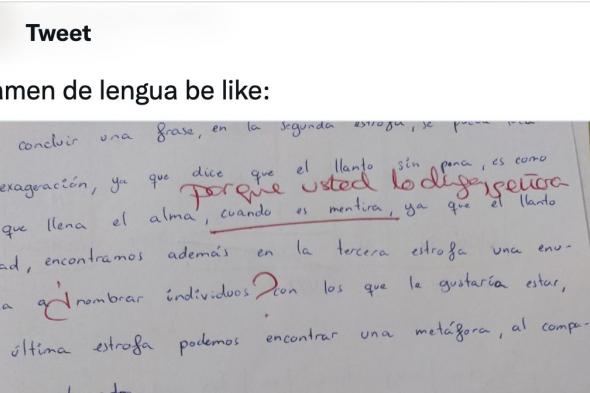 Tweet
amen de lengua be like:
concluir una frase, en la segunda estrofa, se
exageración, ya que dice que el llanto sin pena, es como
porque usted lo diga, señora
que llena el alma, cuando es mentira, ya que el llanto
ad, encontramos además en la tercera estrofa una enu-
a ¿nombrar individuos? con los que le gustaría estar,
última estrofa podemos encontrar una metáfora, al compa-